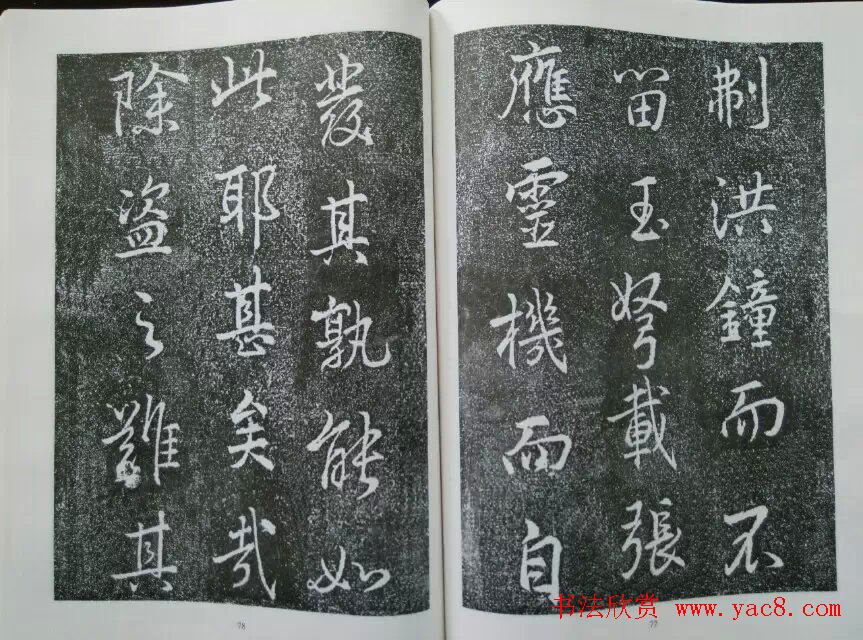 制洪鐘而不
留玉弩載張
應靈機而自
發其孰能如
此耶甚矣哉
除盜之難其
78
77
书法欣赏 www.yac8.com